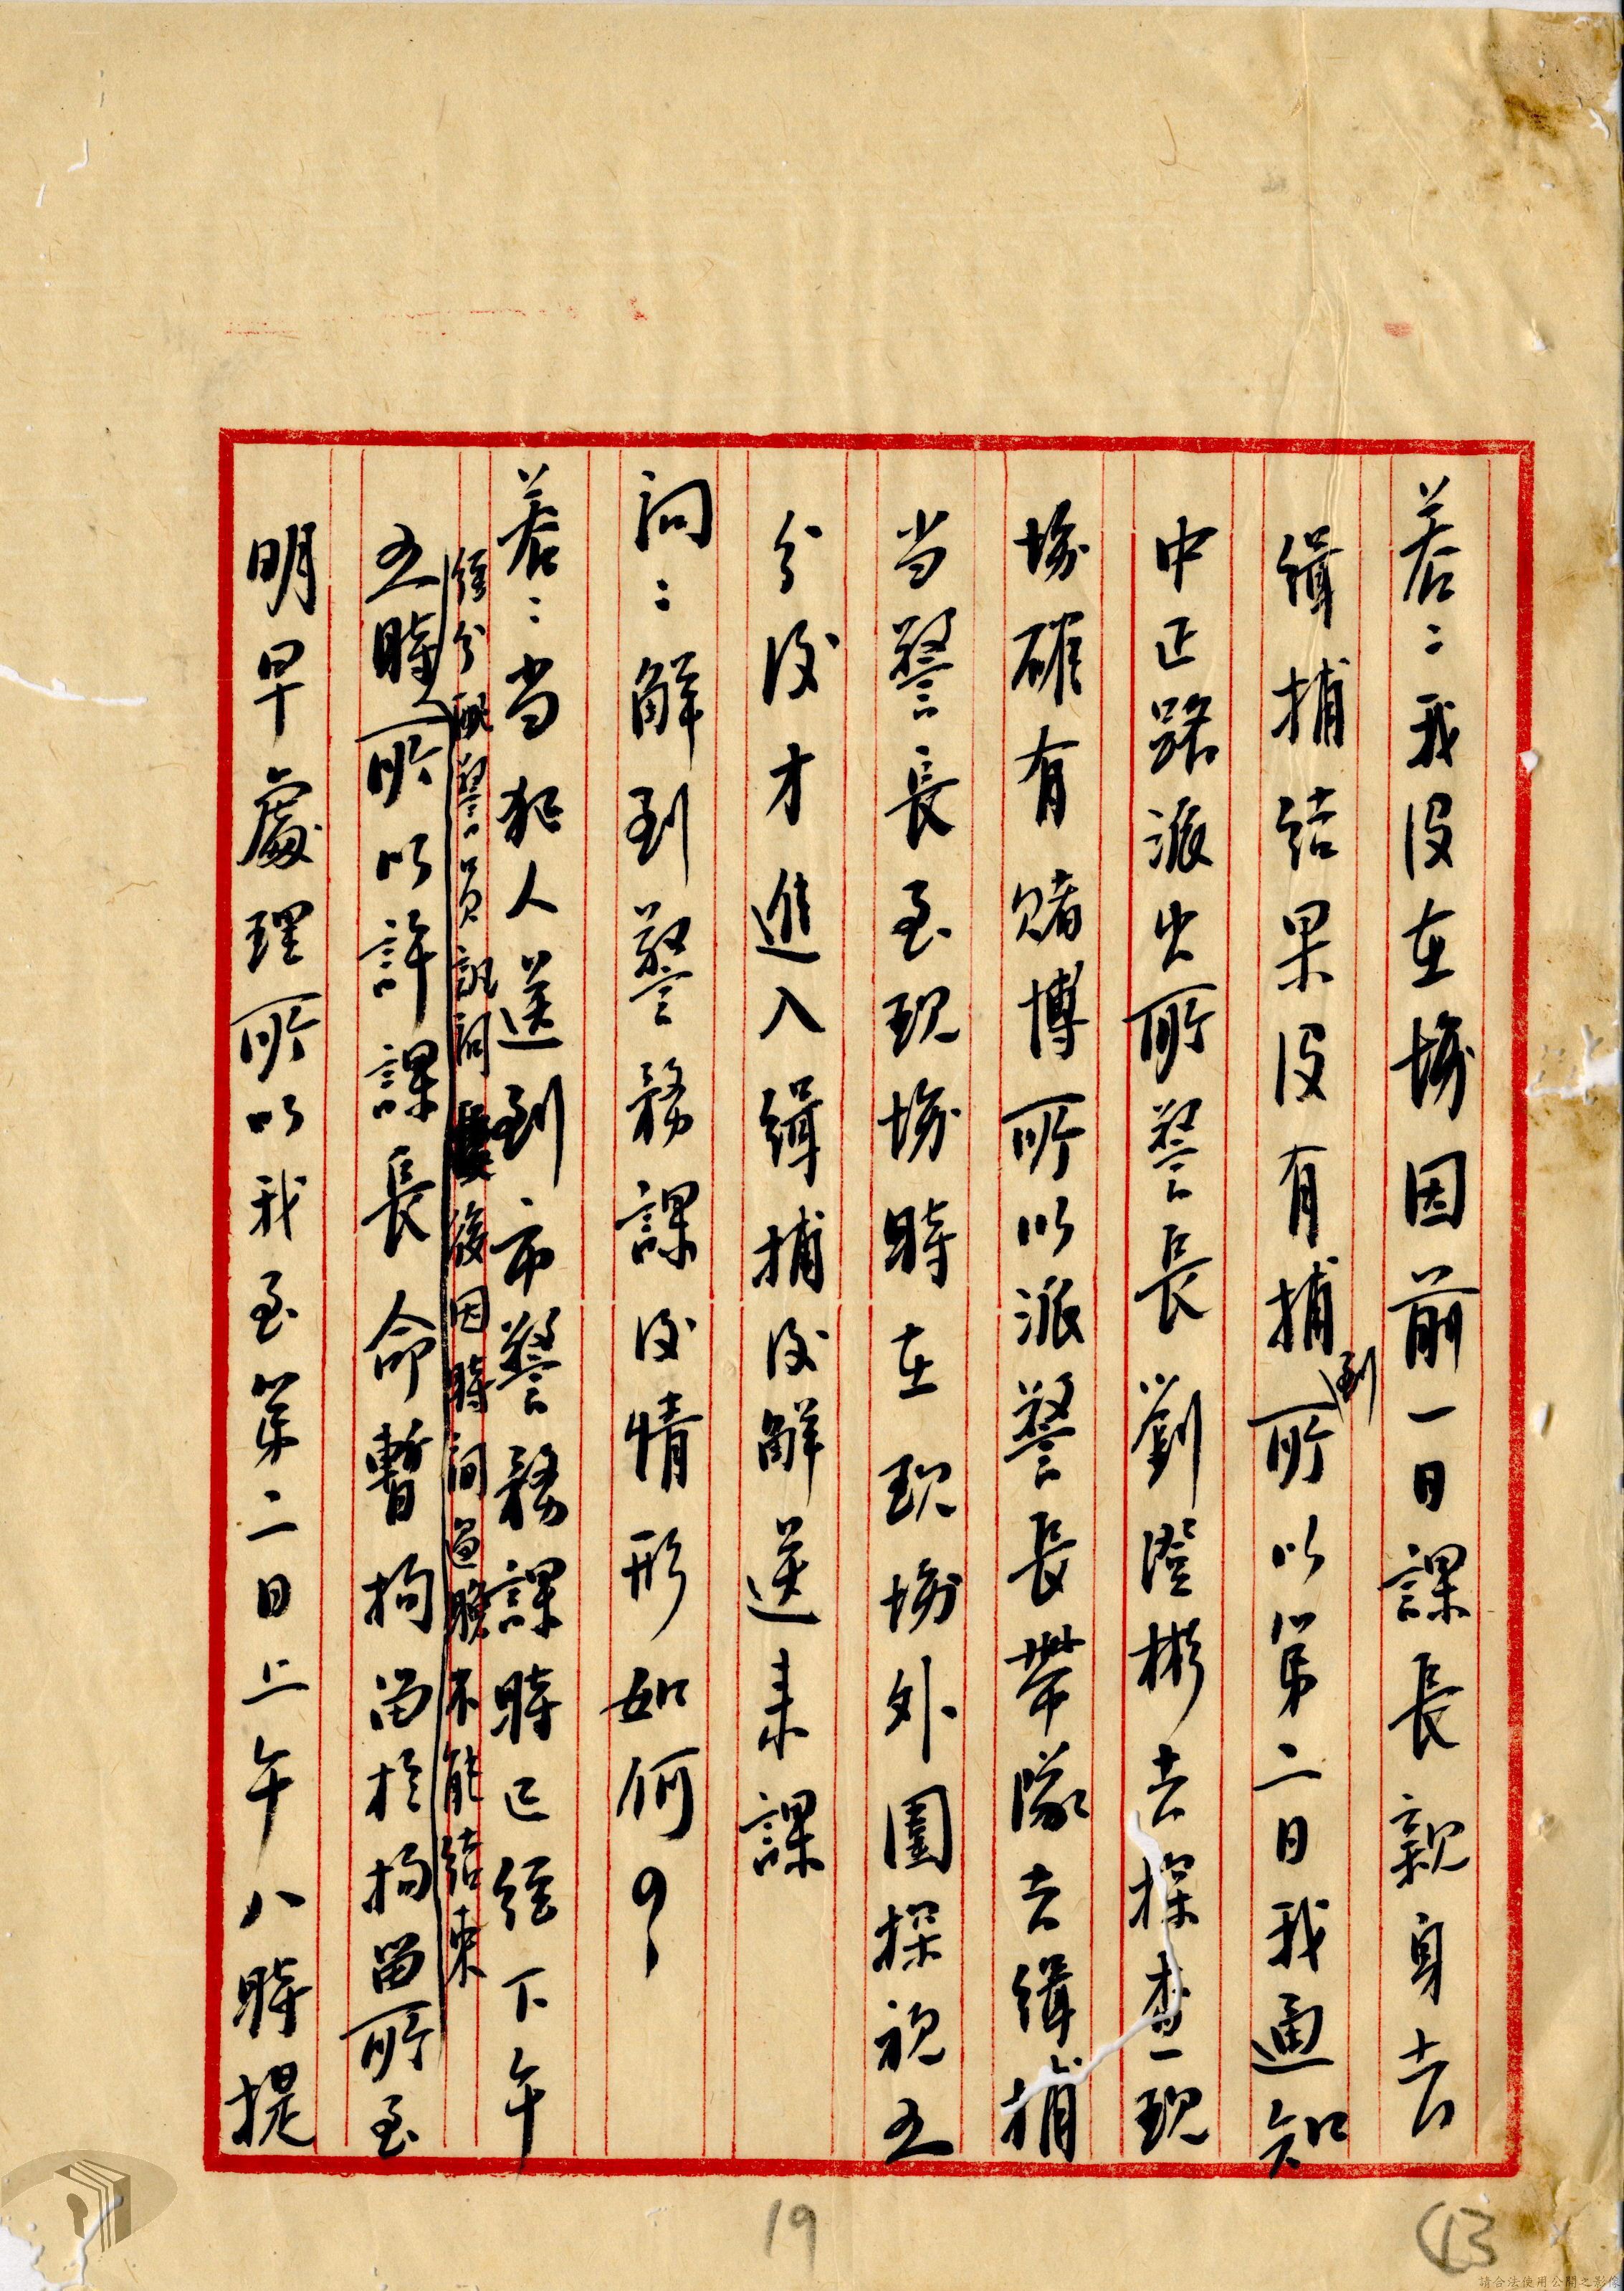 答：我没在場因前一日課長親身去
緝捕結果没有捕到所以第二日我通知
中正路派出所警長劉澄彬去探查一現
場確有賭博所以派警長帶隊去緝捕
当警長至現場時在現場外圍探視五
分後才進入緝捕後解送来課
問：解到警務課後情形如何？
答：当犯人送到市警務課時已經下午
經分配警員訊問後因時間過晚不能結束
五時所以許課長命暫拘留於拘留所至
明早處理所以我至第二日上午八時提
19
13
請合法使用公開之影像